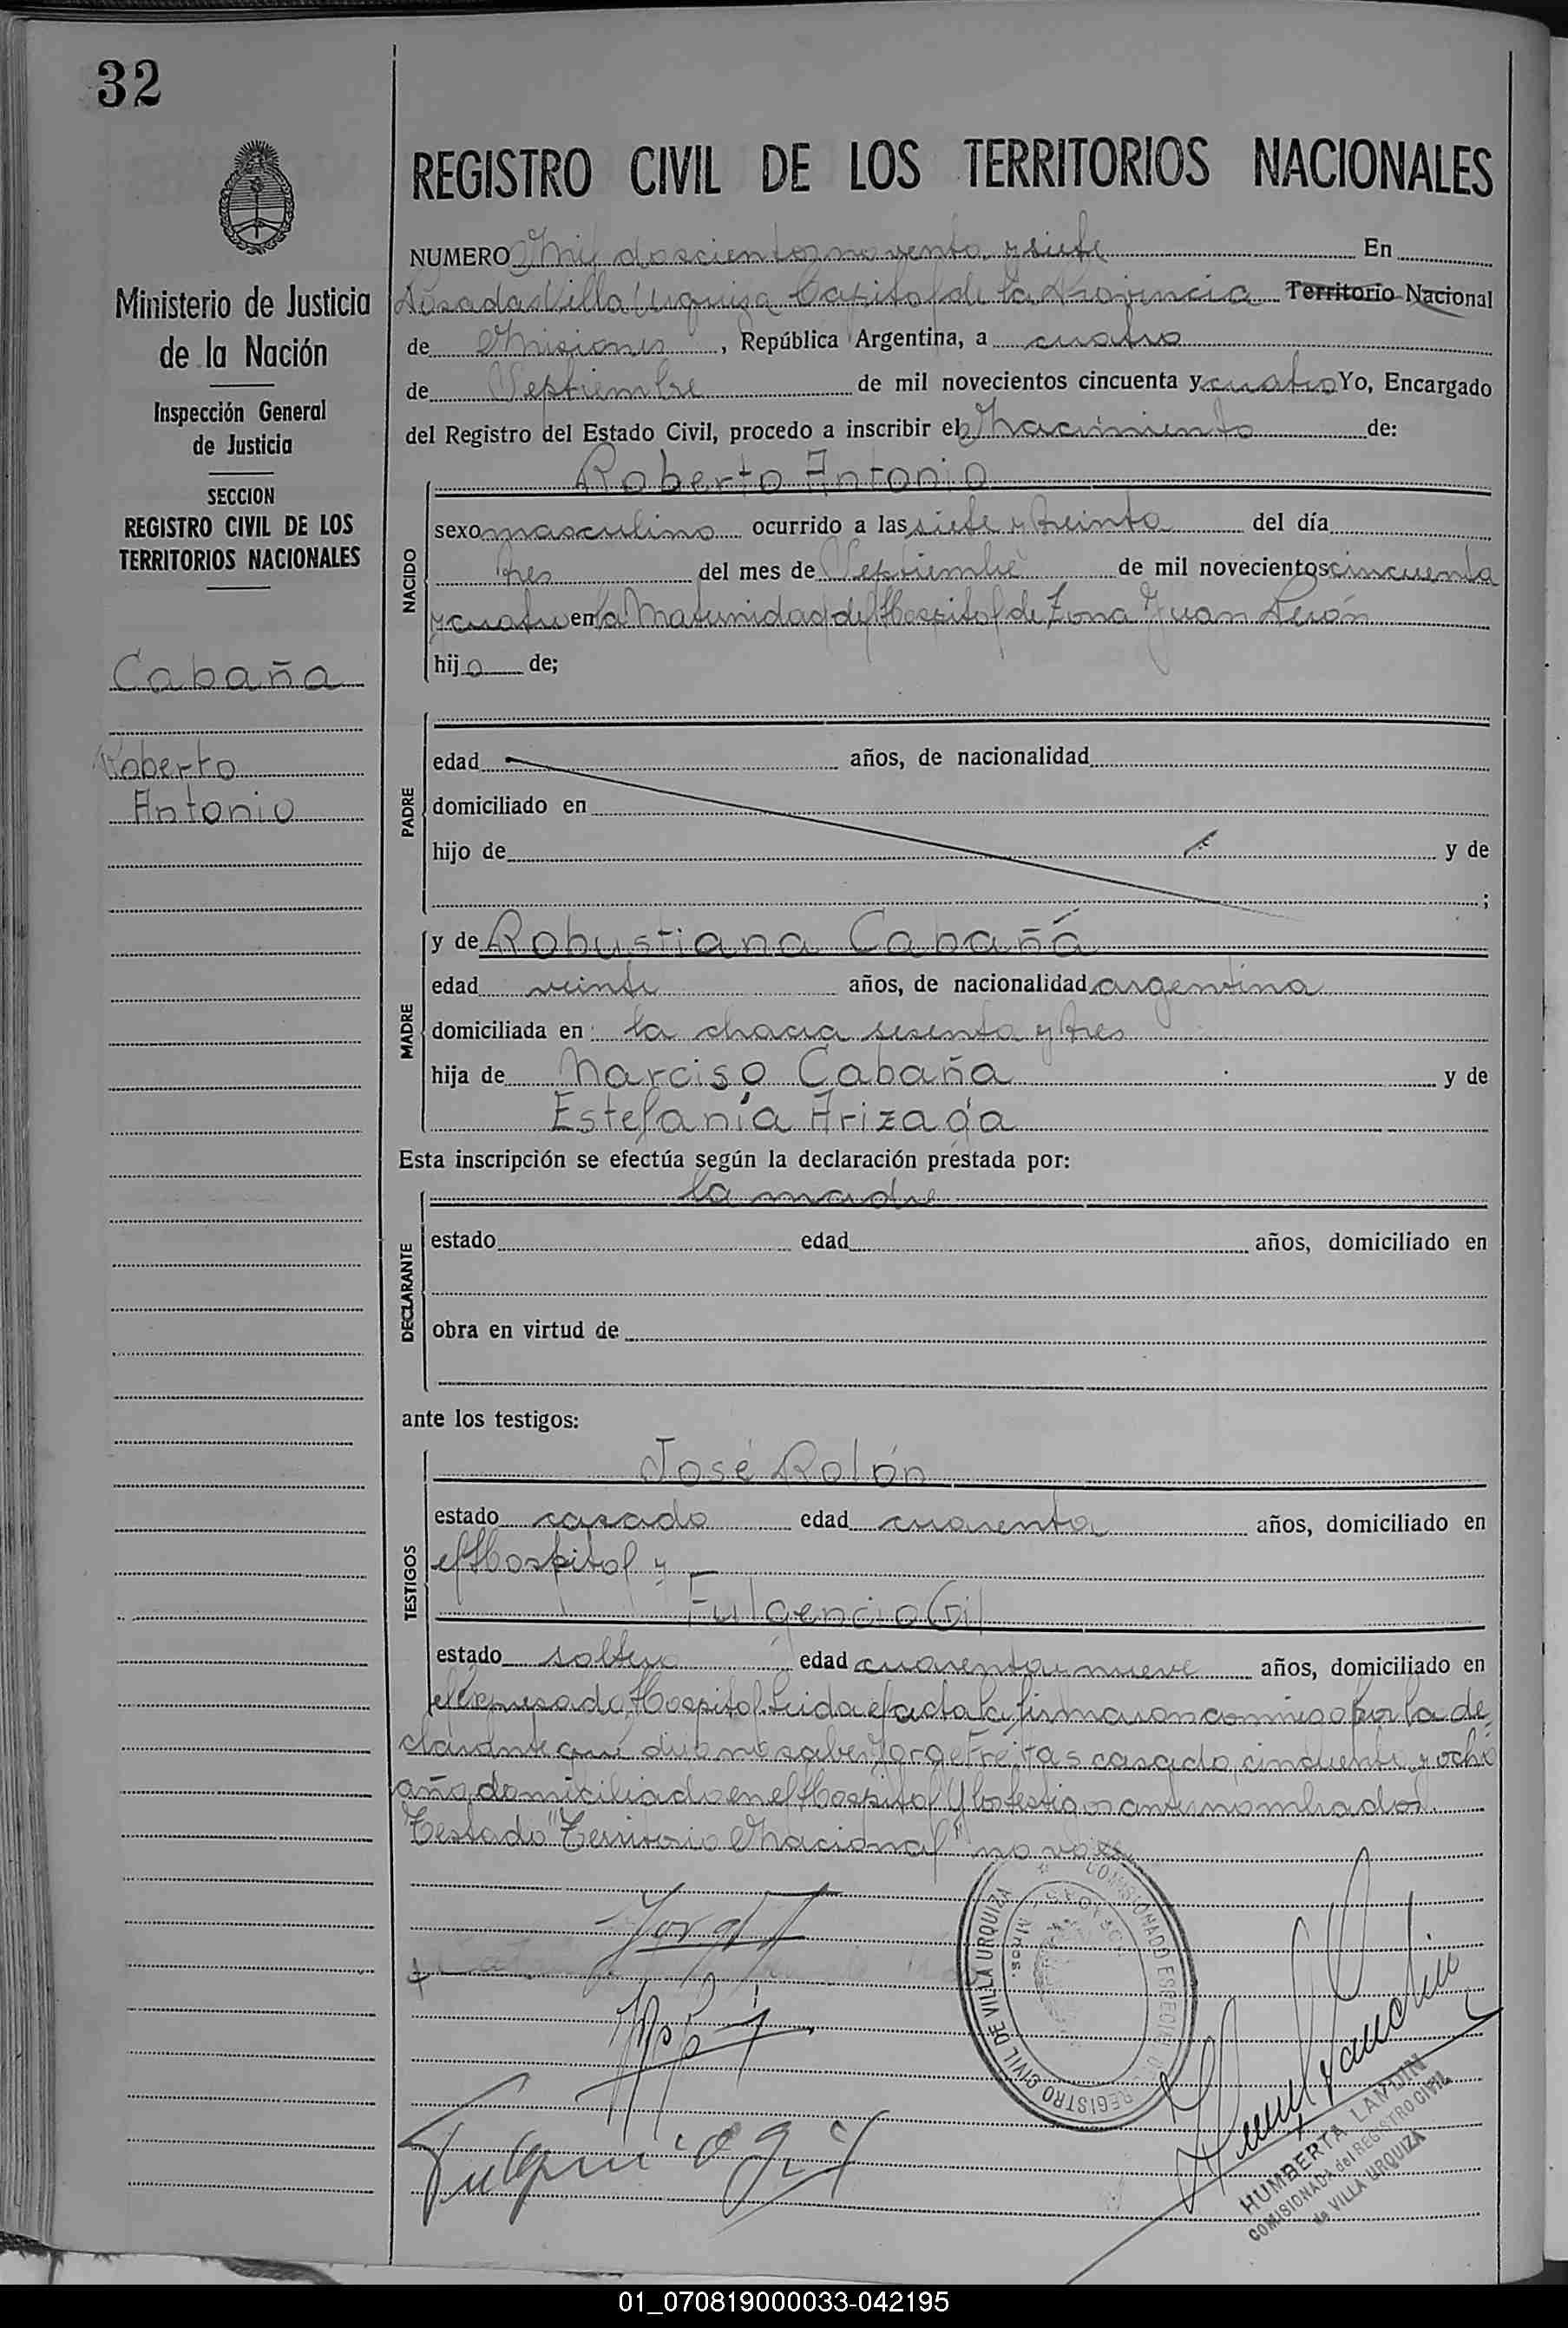 32
REGISTRO CIVIL DE LOS TERRITORIOS NACIONALES
Ministerio de Justicia
de la Nación
Inspección General
de Justicia
SECCION
REGISTRO CIVIL DE LOS
TERRITORIOS NACIONALES
Cabaña
Roberto
Antonio
NUMERO Mil doscientos noventa y siete En
Posadas Villa Urquiza Capital de la Provincia Territorio Nacional
de Misiones, República Argentina, a cuatro
de Septiembre de mil novecientos cincuenta y cuatro Yo, Encargado
del Registro del Estado Civil, procedo a inscribir el Nacimiento de:
Roberto Antonio
NACIDO
sexo masculino ocurrido a las siete y treinta del día
tres del mes de Septiembre de mil novecientos cincuenta
y cuatro en la Maternidad del Hospital de Zona Juan Perón
hijo de;
PADRE
edad años, de nacionalidad
domiciliado en
hijo de y de
;
MADRE
y de Robustiana Cabañá
edad veinte años, de nacionalidad argentina
domiciliada en la chacra sesenta y tres
hija de Narciso Cabaña y de
Estefanía Arizaga
Esta inscripción se efectúa según la declaración prestada por:
la madre
DECLARANTE
estado edad años, domiciliado en
obra en virtud de
ante los testigos:
José Rolón
TESTIGOS
estado casado edad cuarenta años, domiciliado en
el Hospital y
Fulgencio Gil
estado soltero edad cuarenta y nueve años, domiciliado en
el expresado Hospital. Leida el acta la firmaron conmigo por la de-
clarante que dijo no saber Jorge Freitas casado, cincuenta y ocho
años domiciliado en el Hospital y los testigos antes nombrados.
Testado "Territorio Nacional" no vale.
Fulgencio Gil
REGISTRO CIVIL DE VILLA URQUIZA
HUMBERTA LANDIN
COMISIONADA del REGISTRO CIVIL
de VILLA URQUIZA
01_070819000033-042195